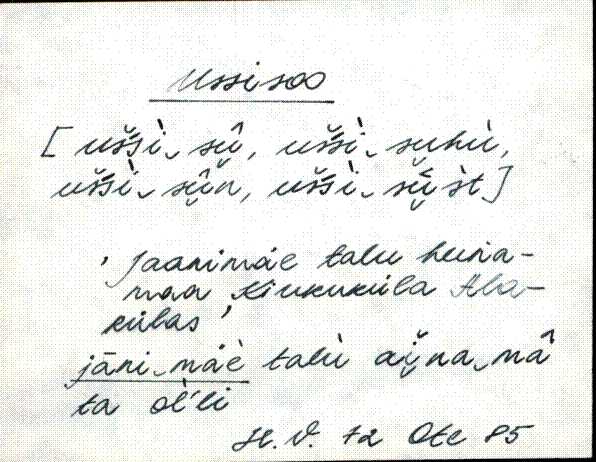 Ussisoo
[ušši‿sū̬̂, ušši‿su̬hù,
ušši‿sū̬̂n, ušši‿sū̬̀st]
‚ Jaanimäe talu heina-
maa Kiukuküla Ala-
külas ’
jāni‿mäè talù ai̬na‿mâ
ta òĺli
H. V. 72 Ote 85